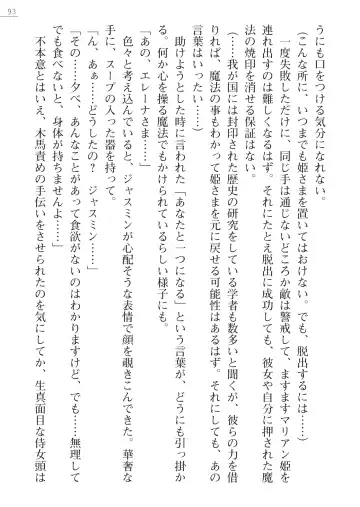 93
うにも口をつける気分になれない。
（こんな所に、いつまでも姫さまを置いてはおけない。でも、脱出するには……）
一度失敗しただけに、同じ手は通じないどころか敵は警戒して、ますますマリアン姫を
連れ出すのは難しくなるはず。それにたとえ脱出に成功しても、彼女や自分に押された魔
法の焼印を消せる保証はない。
（……我が国には封印された歴史の研究をしている学者も数多いと聞くが、彼らの力を借
りれば、魔法の事もわかって姫さまを元に戻せる可能性はあるはず。それにしても、あの
言葉はいったい……）
助けようとした時に言われた「あなたと一つになる」という言葉が、どうにも引っ掛か
る。何か心を操る魔法でもかけられているらしい様子にも。
「あの、エレーナさま……」
色々と考え込んでいると、ジャスミンが心配そうな表情で顔を覗きこんできた。華奢な
手に、スープの入った器を持って。
「ん、あぁ……どうしたの？　ジャスミン……」
「その……夕べ、あんなことがあって食欲がないのはわかりますけど、でも……無理して
でも食べないと、身体が持ちませんよ……」
不本意とはいえ、木馬責めの手伝いをさせられたのを気にしてか、生真面目な侍女頭は